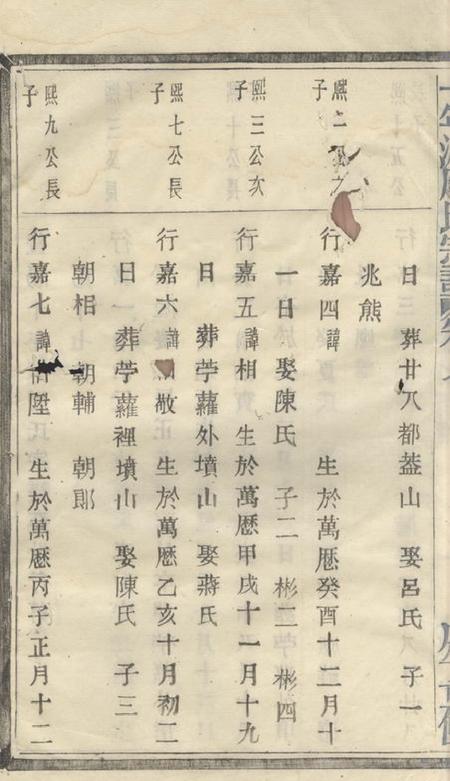 日 葬廿八都葢山 娶呂氏 子一
兆熊
熙二公 子
行嘉四諱 生於萬歷癸酉十二月十
一日 娶陳氏 子二 彬二 彬四
熙三公次子
行嘉五諱相 生於萬歷甲戌十一月十九
日 葬苧蘿外墳山 娶蔣氏
熙七公長子
行嘉六諱 敬 生於萬歷乙亥十月初二
日 葬苧蘿裡墳山 娶陳氏 子三
朝相 朝輔 朝郞
熙九公長子
行嘉七諱 陞 生於萬歷丙子正月十二